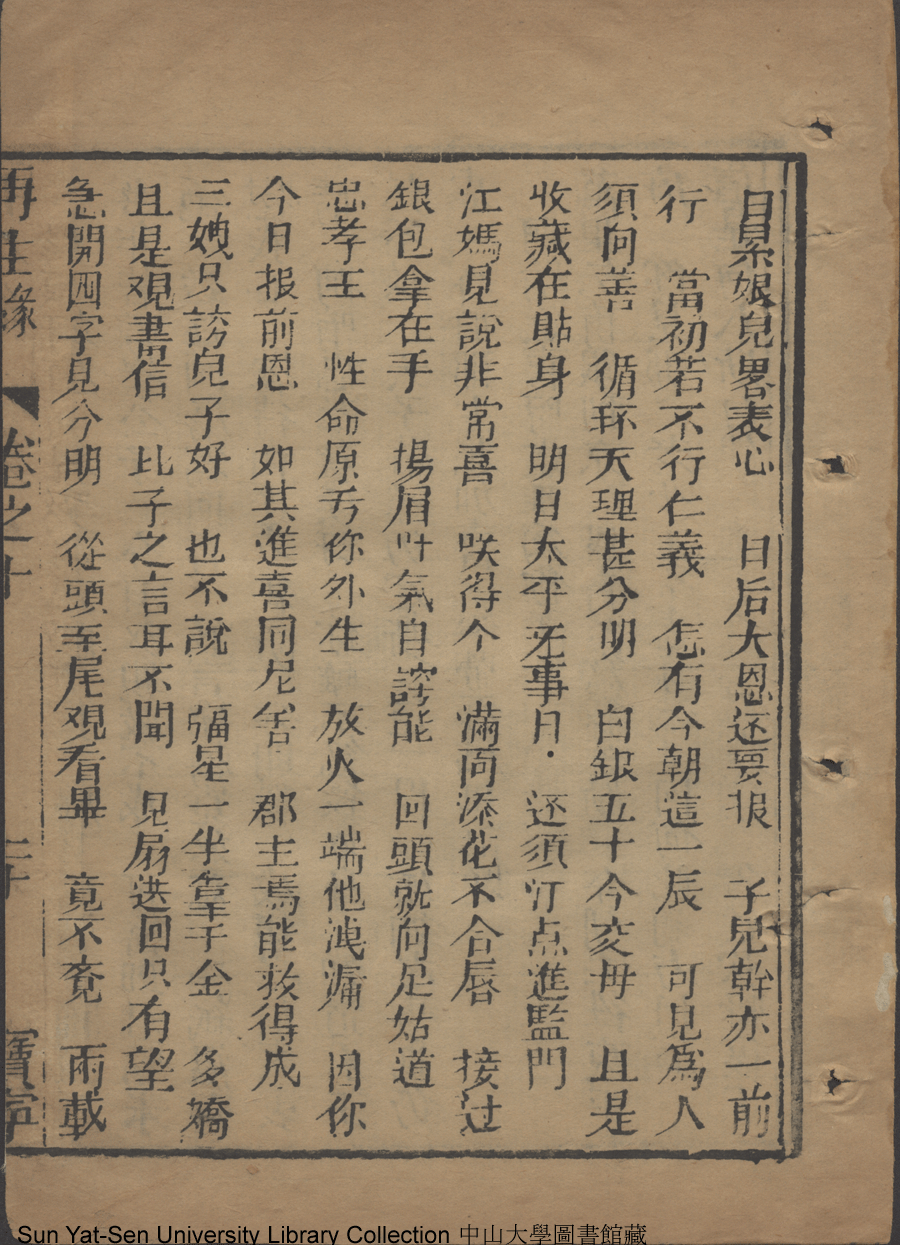 目累娘兒畧表心　日后大恩还要报　子兒幹亦一前
行　當初若不行仁義　怎有今朝這一辰　可見為人
須向善　循环天理甚分明　白銀五十今交毋　且是
收藏在貼身　明日太平死事日　还须汀点進監門
江媽見說非常喜　咲得个　滿面添花不合唇　接过
銀包拿在手　揚眉吐氣自誇能　回頭就向足姑道
忠孝王　性命原亏你外生　放火一端他洩漏　因你
今日报前恩　如其進喜同尼舍　郡主焉能救得成
三姨只謗兒子好　也不說　福星一半靠千金　多嬌
且是观書信　比子之言耳不聞　見扇送回只有望
急開四字見分明　從頭至尾观看畢　竟不覔　兩載
再生缘　卷之十　二十　寶寧
Sun Yat-Sen University Library Collection 中山大學圖書館藏